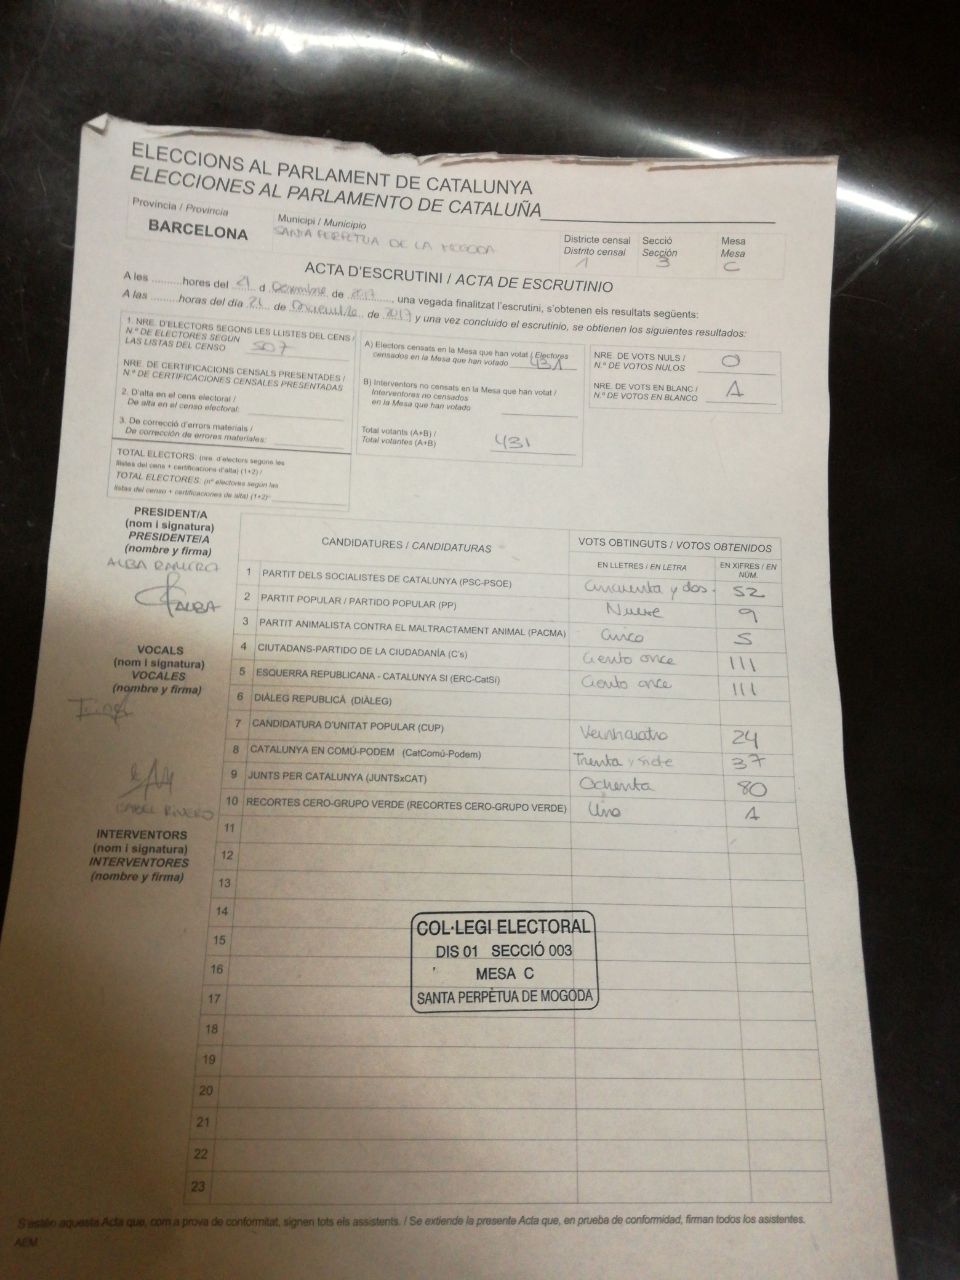 ELECCIONS AL PARLAMENT DE CATALUNYA
ELECCIONES AL PARLAMENTO DE CATALUÑA
Provincia / Provincia
BARCELONA
Municipi / Municipio
SANTA PERPETUA DE LA MOGODA
Districte censal
Distrito censal
1
Secció
Sección
3
Mesa
Mesa
C
ACTA D'ESCRUTINI / ACTA DE ESCRUTINIO
A les ...........hores del 21 d Desembre de 2017, una vegada finalitzat l'escrutini, s'obtenen els resultats següents:
A las ...........horas del día 21 de Diciembre de 2017 y una vez concluido el escrutinio, se obtienen los siguientes resultados:
1. NRE. D'ELECTORS SEGONS LES LLISTES DEL CENS /
N.º DE ELECTORES SEGÚN
LAS LISTAS DEL CENSO 507
NRE. DE CERTIFICACIONS CENSALS PRESENTADES /
N.º DE CERTIFICACIONES CENSALES PRESENTADAS
2. D'alta en el cens electoral /
De alta en el censo electoral:
3. De correcció d'errors materials /
De corrección de errores materiales:
TOTAL ELECTORS: (nre. d'electors segons les
llistes del cens + certificacions d'alta) (1+2) /
TOTAL ELECTORES: (nº electores según las
listas del censo + certificaciones de alta) (1+2):
A) Electors censats en la Mesa que han votat / Electores
censados en la Mesa que han votado 431
B) Interventors no censats en la Mesa que han votat /
Interventores no censados
en la Mesa que han votado
Total votants (A+B) /
Total votantes (A+B) 431
NRE. DE VOTS NULS /
N.º DE VOTOS NULOS 0
NRE. DE VOTS EN BLANC /
N.º DE VOTOS EN BLANCO 1
PRESIDENT/A
(nom i signatura)
PRESIDENTE/A
(nombre y firma)
ALBA
ALBA
VOCALS
(nom i signatura)
VOCALES
(nombre y firma)
RIVERO
INTERVENTORS
(nom i signatura)
INTERVENTORES
(nombre y firma)
CANDIDATURES / CANDIDATURAS
VOTS OBTINGUTS / VOTOS OBTENIDOS
EN LLETRES / EN LETRA
EN XIFRES / EN NÚM.
1 PARTIT DELS SOCIALISTES DE CATALUNYA (PSC-PSOE) Cincuenta y dos. 52
2 PARTIT POPULAR / PARTIDO POPULAR (PP) Nueve 9
3 PARTIT ANIMALISTA CONTRA EL MALTRACTAMENT ANIMAL (PACMA) Cinco 5
4 CIUTADANS-PARTIDO DE LA CIUDADANÍA (C's) Ciento once 111
5 ESQUERRA REPUBLICANA - CATALUNYA SI (ERC-CatSí) Ciento once 111
6 DIÀLEG REPUBLICÀ (DIÀLEG)
7 CANDIDATURA D'UNITAT POPULAR (CUP) Veinticuatro 24
8 CATALUNYA EN COMÚ-PODEM (CatComú-Podem) Trenta y siete 37
9 JUNTS PER CATALUNYA (JUNTSxCAT) Ochenta 80
10 RECORTES CERO-GRUPO VERDE (RECORTES CERO-GRUPO VERDE) Uno 1
11
12
13
14
15
16
17
18
19
20
21
22
23
COL·LEGI ELECTORAL
DIS 01 SECCIÓ 003
MESA C
SANTA PERPÈTUA DE MOGODA
S'estén aquesta Acta que, com a prova de conformitat, signen tots els assistents. / Se extiende la presente Acta que, en prueba de conformidad, firman todos los asistentes.
AEM